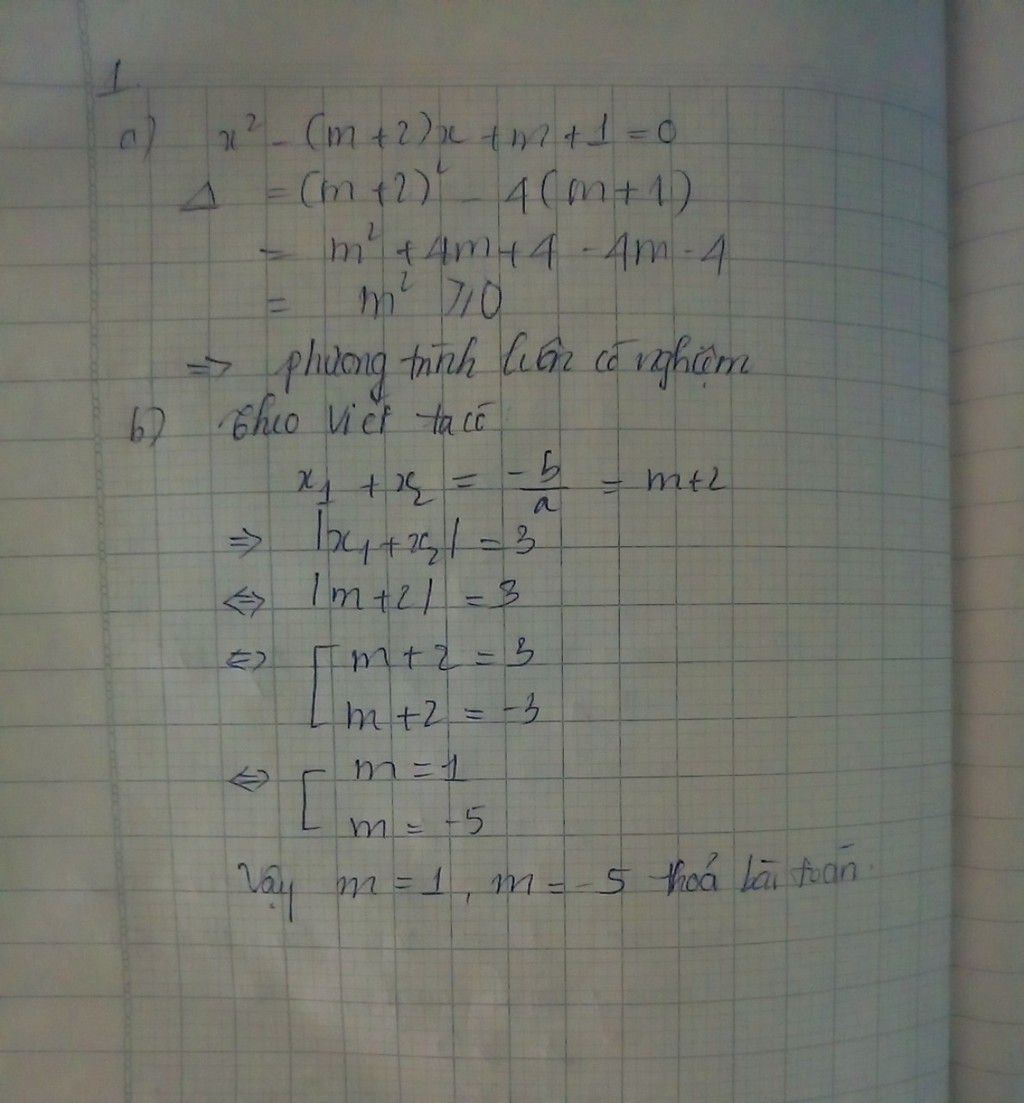 1.
a) x² - (m+2)x + m + 1 = 0
Δ = (m+2)² - 4(m+1)
= m² + 4m + 4 - 4m - 4
= m² ≥ 0
⇒ phương trình luôn có nghiệm
b) Theo Viét ta có
x₁ + x₂ = -b/a = m+2
⇒ |x₁ + x₂| = 3
⇔ |m+2| = 3
⇔ [ m+2 = 3
m+2 = -3
⇔ [ m = 1
m = -5
Vậy m = 1, m = -5 thoả bài toán.